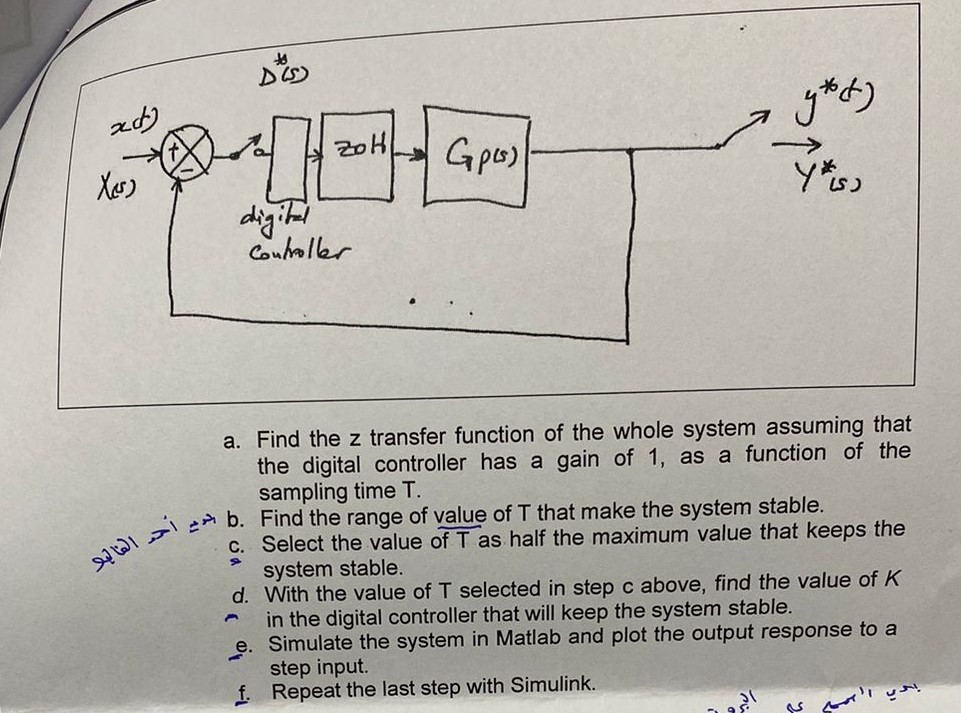 D*(s)
x(t)
X(s)
+
-
ZOH
Gp(s)
y*(t)
Y*(s)
digital
Controller
a. Find the z transfer function of the whole system assuming that
the digital controller has a gain of 1, as a function of the
sampling time T.
b. Find the range of value of T that make the system stable.
c. Select the value of T as half the maximum value that keeps the
system stable.
d. With the value of T selected in step c above, find the value of K
in the digital controller that will keep the system stable.
e. Simulate the system in Matlab and plot the output response to a
step input.
f. Repeat the last step with Simulink.